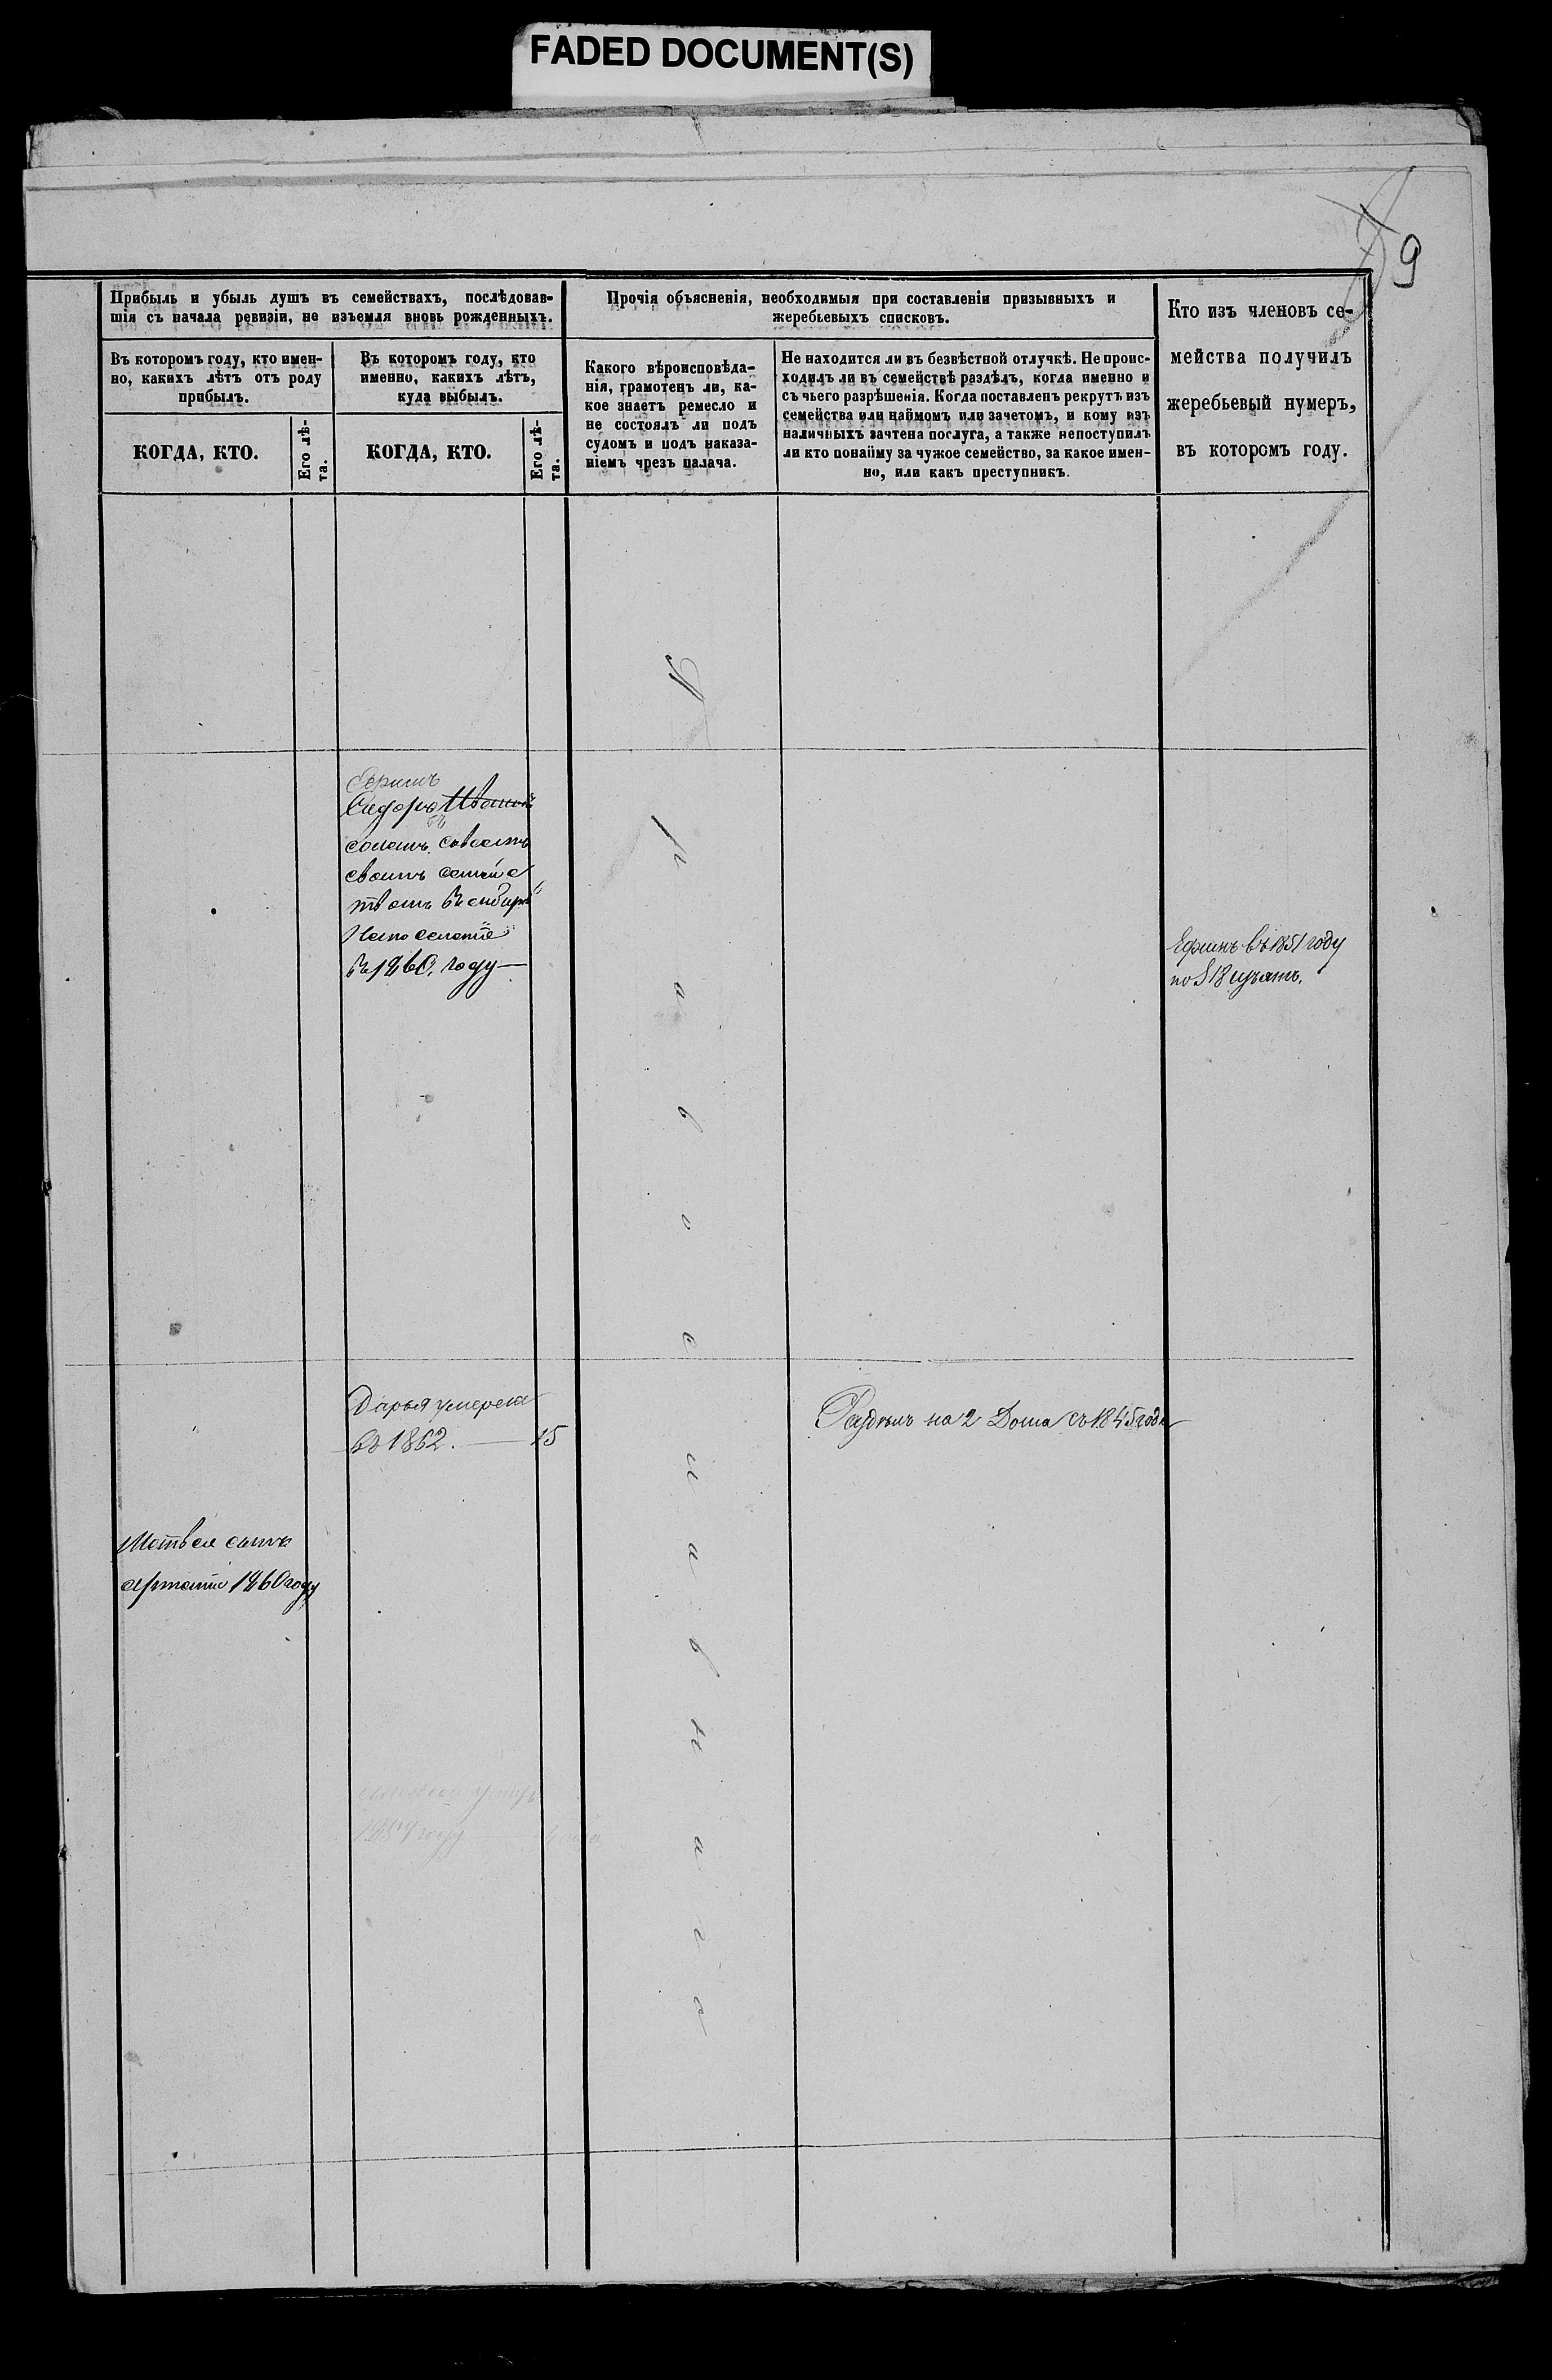 FADED DOCUMENT(S)
9
Прибыль и убыль душъ въ семействахъ, послѣдовав-
шія съ начала ревизіи, не изъемля вновь рожденныхъ.
Въ которомъ году, кто имен-
но, какихъ лѣтъ отъ роду
прибылъ.
КОГДА, КТО.
Его лѣ-
та.
Въ которомъ году, кто
именно, какихъ лѣтъ,
куда выбылъ.
КОГДА, КТО.
Его лѣ-
та.
Прочія объясненія, необходимыя при составленіи призывныхъ и
жеребьевыхъ списковъ.
Какого вѣроисповѣда-
нія, грамотенъ ли, ка-
кое знаетъ ремесло и
не состоялъ ли подъ
судомъ и подъ наказа-
ніемъ чрезъ палача.
Не находится ли въ безвѣстной отлучкѣ. Не проис-
ходилъ ли въ семействѣ раздѣлъ, когда именно и
съ чьего разрѣшенія. Когда поставленъ рекрутъ изъ
семейства или наймомъ или зачетомъ, и кому изъ
наличныхъ зачтена послуга, а также непоступилъ
ли кто понайму за чужое семейство, за какое имен-
но, или какъ преступникъ.
Кто изъ членовъ се-
мейства получилъ
жеребьевый нумеръ,
въ которомъ году.
Ефимъ
Сидоръ Ивановъ
сосланъ совсемъ
своимъ семейс
твомъ въ сибирь
на поселеніе
въ 1860. году
Ефимъ въ 1851 году
по § 18 изъятъ.
Дарья умерела
въ 1862. 15
Раздѣлъ на 2 Дома съ 1845 года
Матвея сынъ
1860 году
П
р
а
в
о
с
л
а
в
н
а
г
о